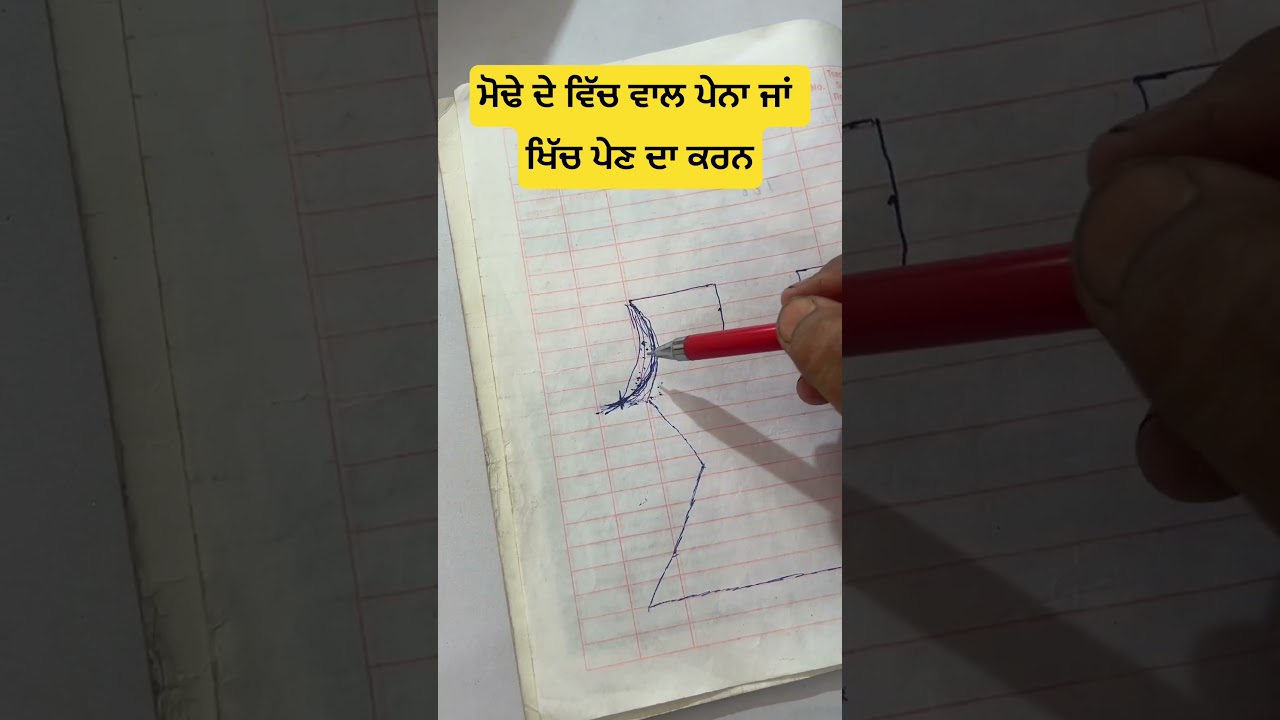 ਮੋਢੇ ਦੇ ਵਿੱਚ ਵਾਲ ਪੇਨਾ ਜਾਂ
ਖਿੱਚ ਪੇਣ ਦਾ ਕਰਨ